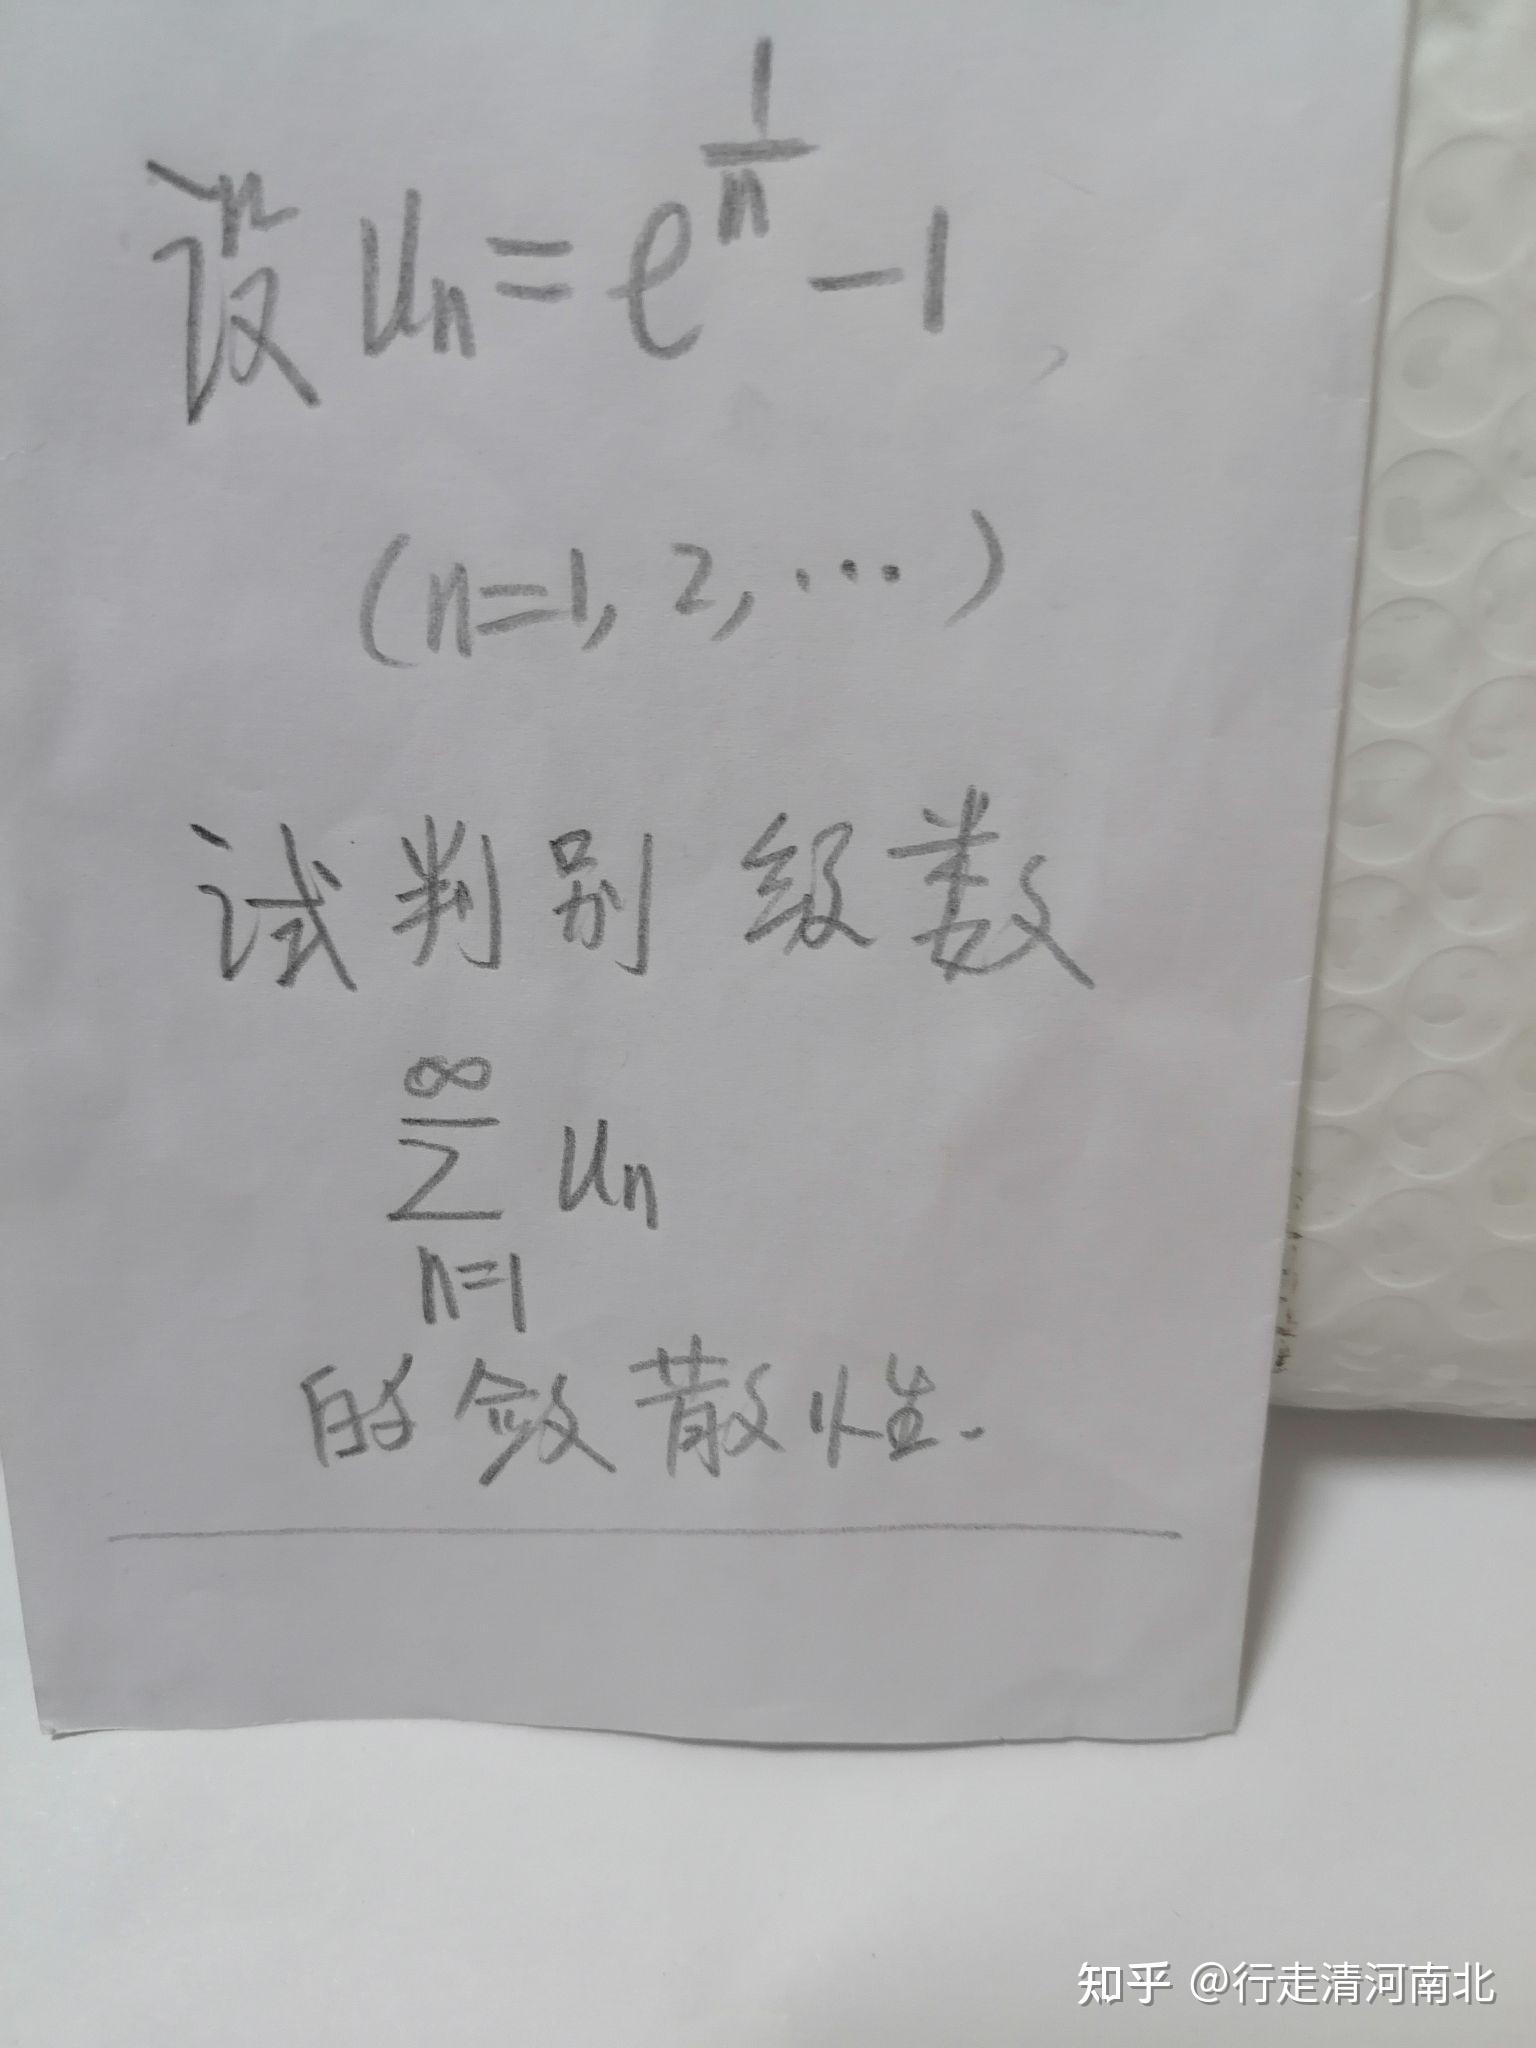 设 uₙ = e^(1/n) − 1,
(n=1, 2, ···)
试判别 级数
∑_{n=1}^{∞} uₙ
的敛散性.
知乎 @行走清河南北